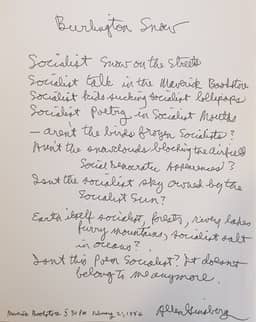 Burlington Snow
Socialist Snow on the Streets
Socialist talk in the Maverick Bookstore
Socialist kids sucking socialist lollipops
Socialist Poetry in Socialist Mouths
— aren't the birds frozen Socialists?
Aren't the snowclouds blocking the airfield
Social Democratic Appearances?
Isn't the socialist sky owned by the
Socialist Sun?
Earth itself socialist, forests, rivers, lakes
furry mountains, socialist salt
in oceans?
Isn't this Poem Socialist? It doesn't
belong to me anymore.
Allen Ginsberg